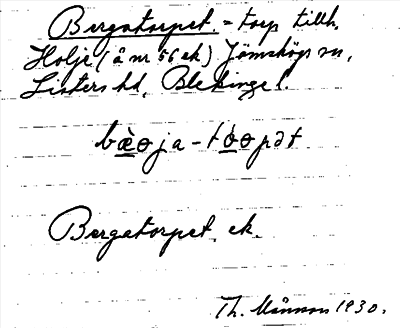 Bergatorpet. = torp tillh.
Holje (å nr 56 ek) Jämshögs sn,
Listers hd, Blekinge l.
bæ̀ɵja-tòɵpət
Bergatorpet. ek.
Th. Månsson 1930.